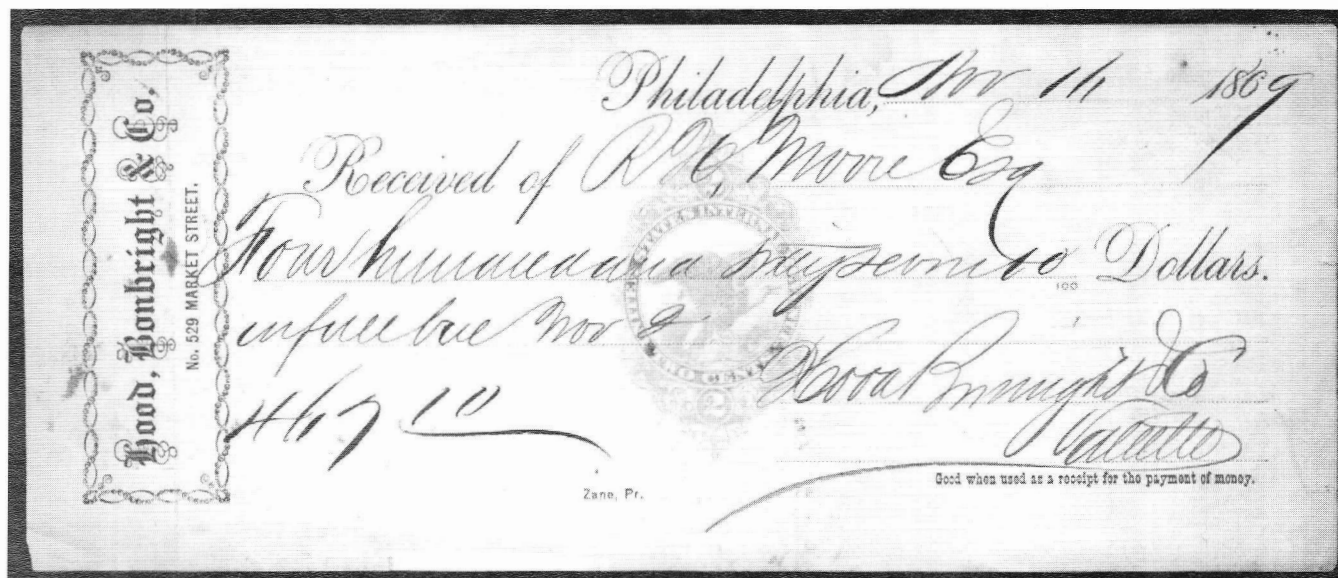 Hood, Bonbright & Co.
No. 529 MARKET STREET.
Philadelphia, Nov 1869
Received of R Moore Esq
Four hundred and sixty seven 10/100 Dollars.
in full due Nov 2
467 10
Hood Bonbright & Co
Good when used as a receipt for the payment of money.
Zane, Pr.
UNITED STATES INTER